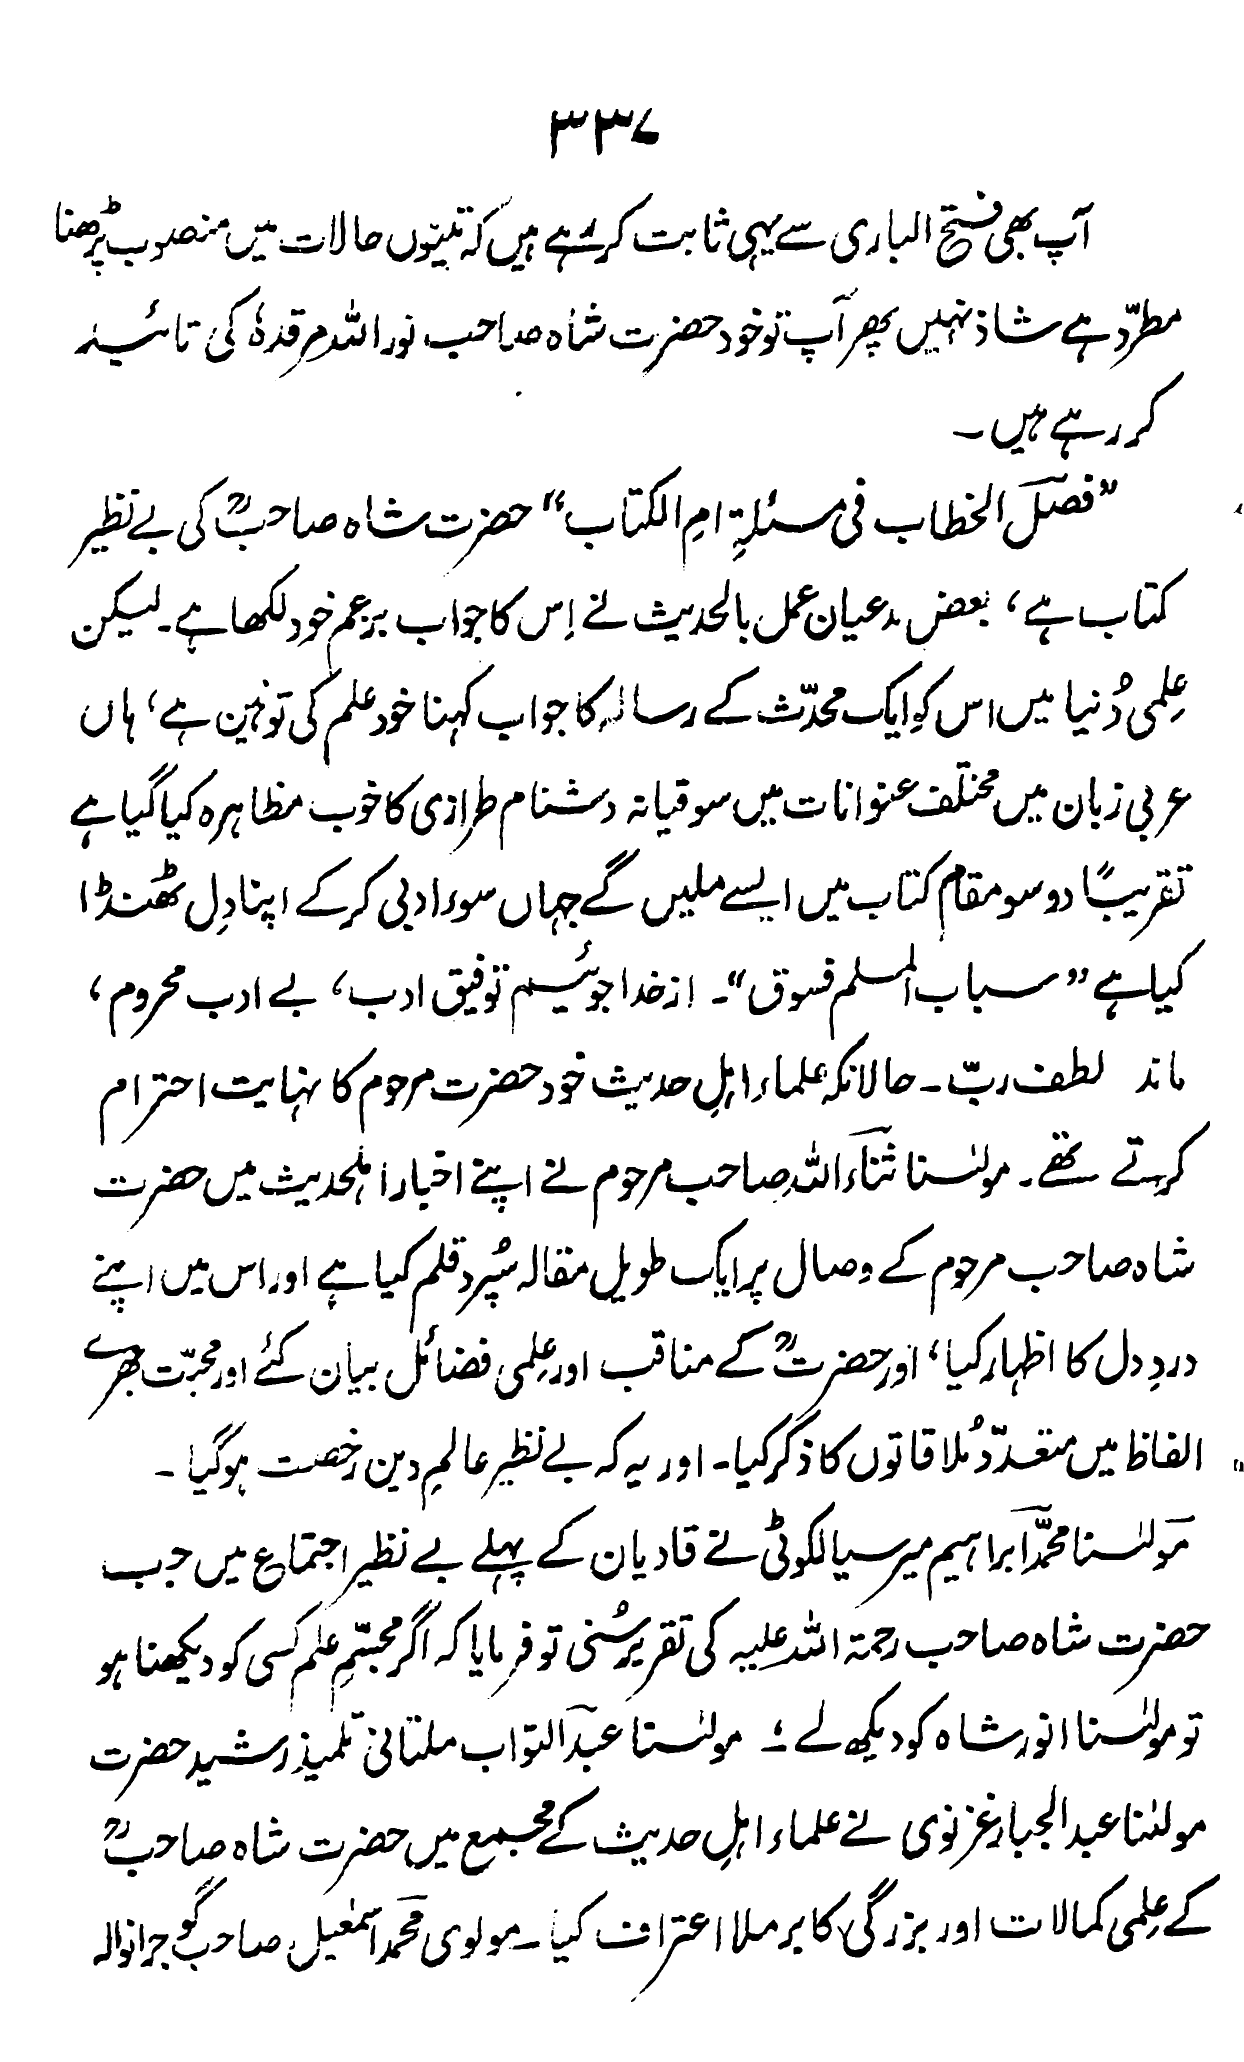 ۳۳۷
آپ بھی فتح الباری سے یہی ثابت کر رہے ہیں کہ تینوں حالات میں منصوب پڑھنا
مطرّد ہے شاذ نہیں پھر آپ تو خود حضرت شاہ صاحب نور اللہ مرقدہٗ کی تائید
کر رہے ہیں ۔
”فصل الخطاب فی مسئلۃِ امِ الکتاب“ حضرت شاہ صاحبؒ کی بے نظیر
کتاب ہے، بعض مدعیان عمل بالحدیث نے اِس کا جواب بزعم خود لکھا ہے۔ لیکن
عِلمی دُنیا میں اس کو ایک محدّث کے رسالہ کا جواب کہنا خود علم کی توہین ہے، ہاں
عربی زبان میں مختلف عنوانات میں سوقیانہ دشنام طرازی کا خوب مظاہرہ کیا گیا ہے
تقریبًا دو سو مقام کتاب میں ایسے ملیں گے جہاں سوء ادبی کر کے اپنا دِل ٹھنڈا
کیا ہے ”سباب المسلم فسوق“۔ از خدا جوئیم توفیق ادب، بے ادب محروم،
ماند لطف ربّ ۔ حالانکہ علماء اہلِ حدیث خود حضرت مرحوم کا نہایت احترام
کرتے تھے ۔ مولٰنا ثناء اللہ صاحب مرحوم نے اپنے اخبار اہلحدیث میں حضرت
شاہ صاحب مرحوم کے وصال پر ایک طویل مقالہ سُپرد قلم کیا ہے اور اس میں اپنے
دردِ دل کا اظہار کیا، اور حضرتؒ کے مناقب اور عِلمی فضائل بیان کئے اور محبّت بھرے
الفاظ میں متعدّد مُلاقاتوں کا ذکر کیا۔ اور یہ کہ بے نظیر عالمِ دین رخصت ہوگیا ۔
مولٰنا محمّد ابراہیم میر سیالکوٹی نے قادیان کے پہلے بے نظیر اجتماع میں جب
حضرت شاہ صاحب رحمۃ اللہ علیہ کی تقریر سُنی تو فرمایا کہ اگر مجسّمِ علم کسی کو دیکھنا ہو
تو مولٰنا انور شاہ کو دیکھ لے ؛۔ مولٰنا عبد التواب ملتانی تلمیذِ رشید حضرت
مولٰنا عبد الجبار غزنوی نے علماء اہلِ حدیث کے مجمع میں حضرت شاہ صاحبؒ
کے عِلمی کمالات اور بزرگی کا برملا اعتراف کیا ۔ مولوی محمد اسمٰعیل صاحب گوجرانوالہ